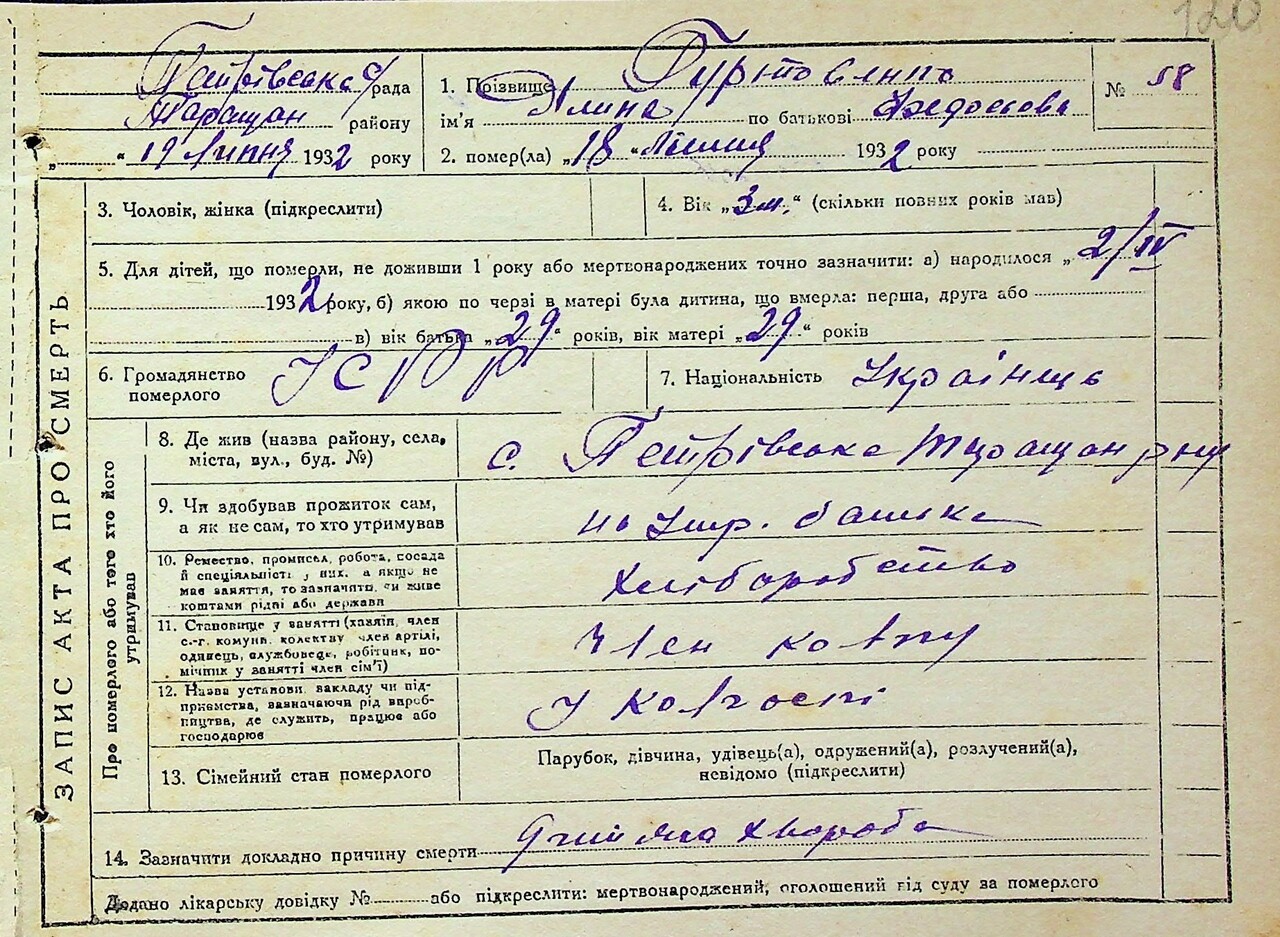 120
Петрівська с/рада
Таращан району
„ “ 19 Липня 1932 року
1. Прізвище Гуртовенко
ім’я Ялина по батькові Федосова
2. помер(ла) „18 “ Липня 1932 року
№ 58
ЗАПИС АКТА ПРО СМЕРТЬ
3. Чоловік, жінка (підкреслити)
4. Вік „3 м.“ (скільки повних років мав)
5. Для дітей, що померли, не доживши 1 року або мертвонароджених точно зазначити: а) народилося „2/IV
1932 року, б) якою по черзі в матері була дитина, що вмерла: перша, друга або
в) вік батька „29“ років, вік матері „29“ років
6. Громадянство
померлого
УСРР
7. Національність Українець
Про померлого або того хто його
утримував
8. Де жив (назва району, села,
міста, вул., буд. №)
с. Петрівська Таращан р-ну
9. Чи здобував прожиток сам,
а як не сам, то хто утримував
на утр. батька
10. Ремество, промисел, робота, посада
й спеціальність у них, а якщо не
має заняття, то зазначити, чи живе
коштами рідні або держави
Хліборобство
11. Становище у занятті (хазяїн, член
с.-г. комуни, колективу член артілі,
одинець, службовець, робітник, по-
мічник у занятті член сім’ї)
Член колгпу
12. Назва установи, закладу чи під-
приємства, зазначаючи рід вироб-
ництва, де служить, працює або
господарює
У колгоспі
13. Сімейний стан померлого
Парубок, дівчина, удівець(а), одружений(а), розлучений(а),
невідомо (підкреслити)
14. Зазначити докладно причину смерти хвороба
Додано лікарську довідку № або підкреслити: мертвонароджений, оголошений від суду за померлого